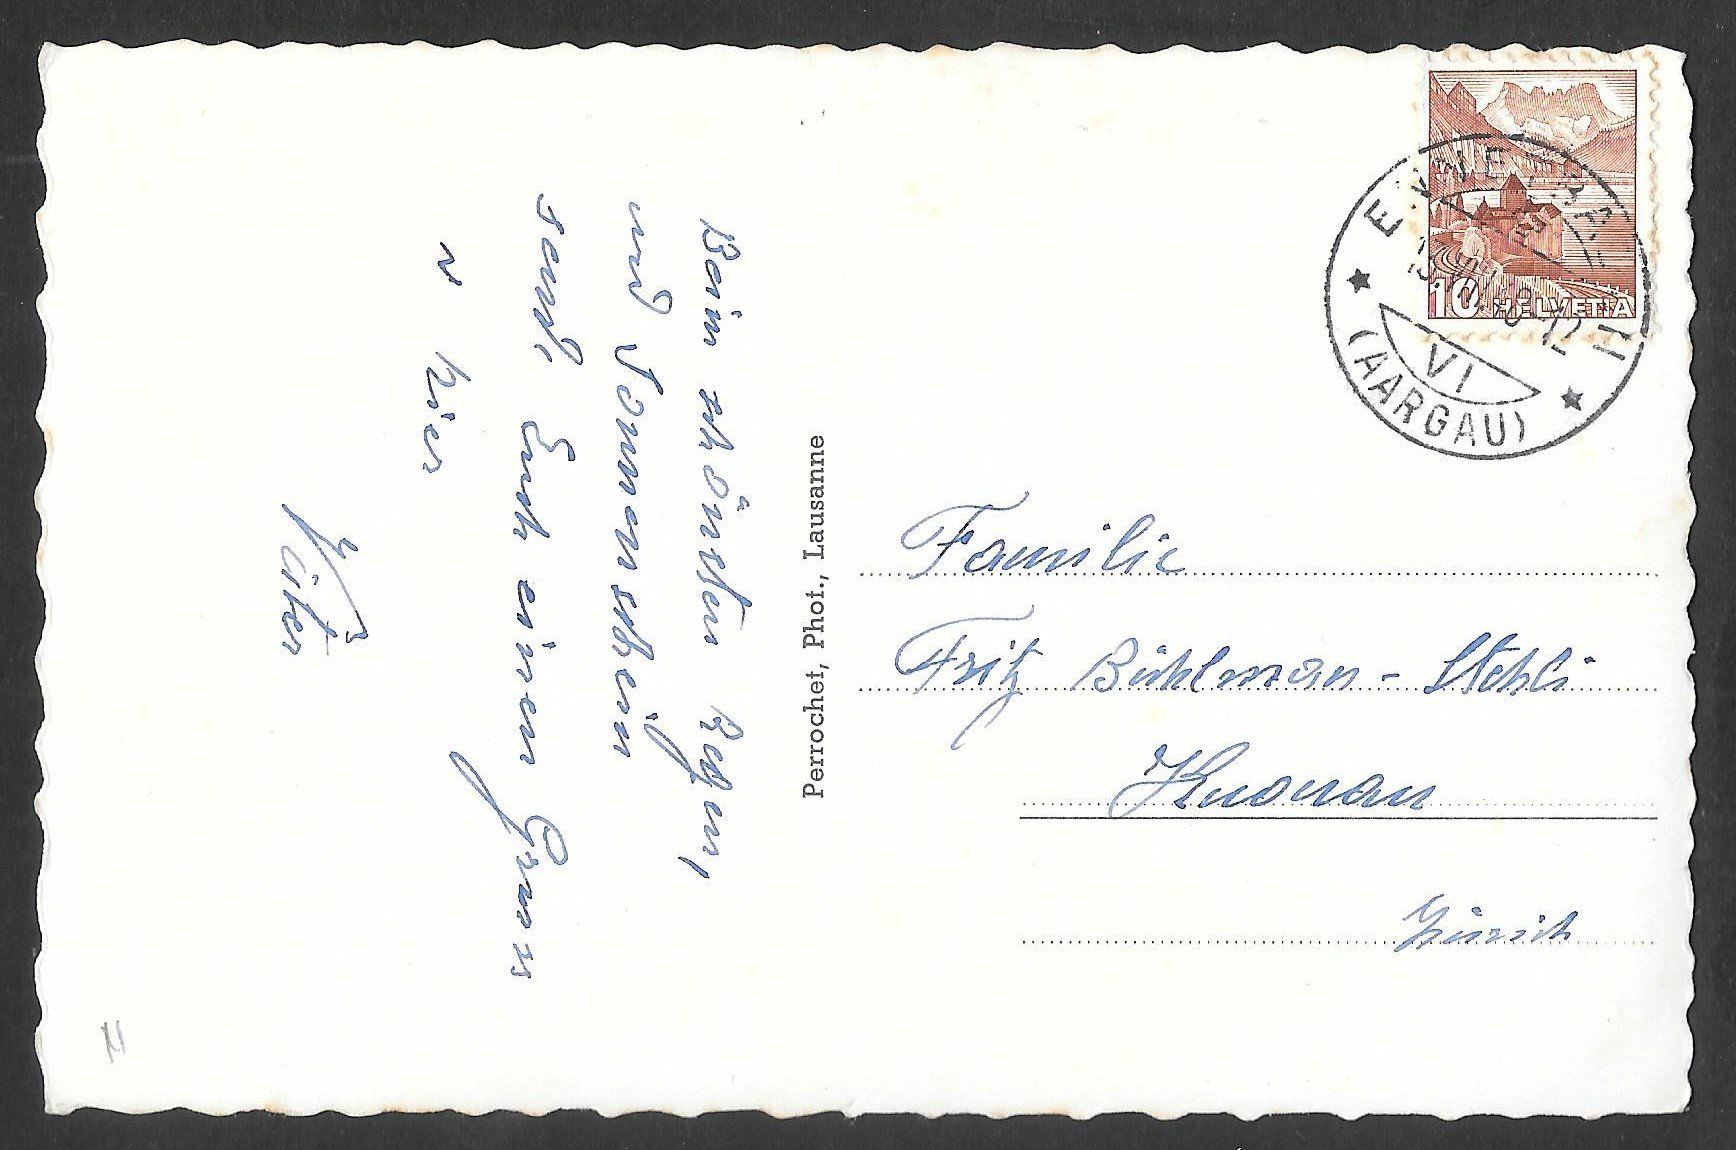 Beim schönsten Regen,
und Sonnenschein
sende Euch einen Gruss
v hier
10 HELVETIA
(AARGAU)
VI
Perrochet, Phot., Lausanne
Familie
Fritz Bühlman - Stehli
Knonau
Zürich